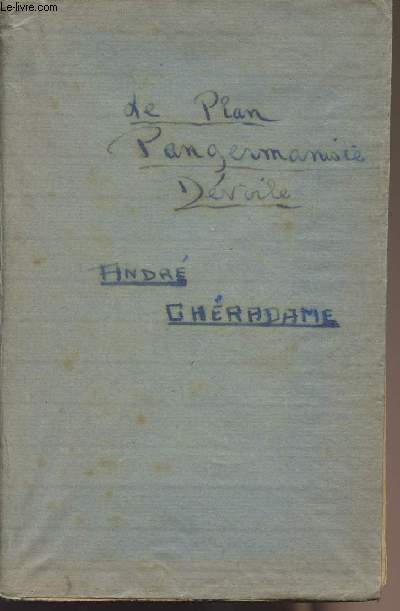 Le-livre.com
Le Plan
Pangermaniste
Dévoilé
ANDRÉ
CHÉRADAME